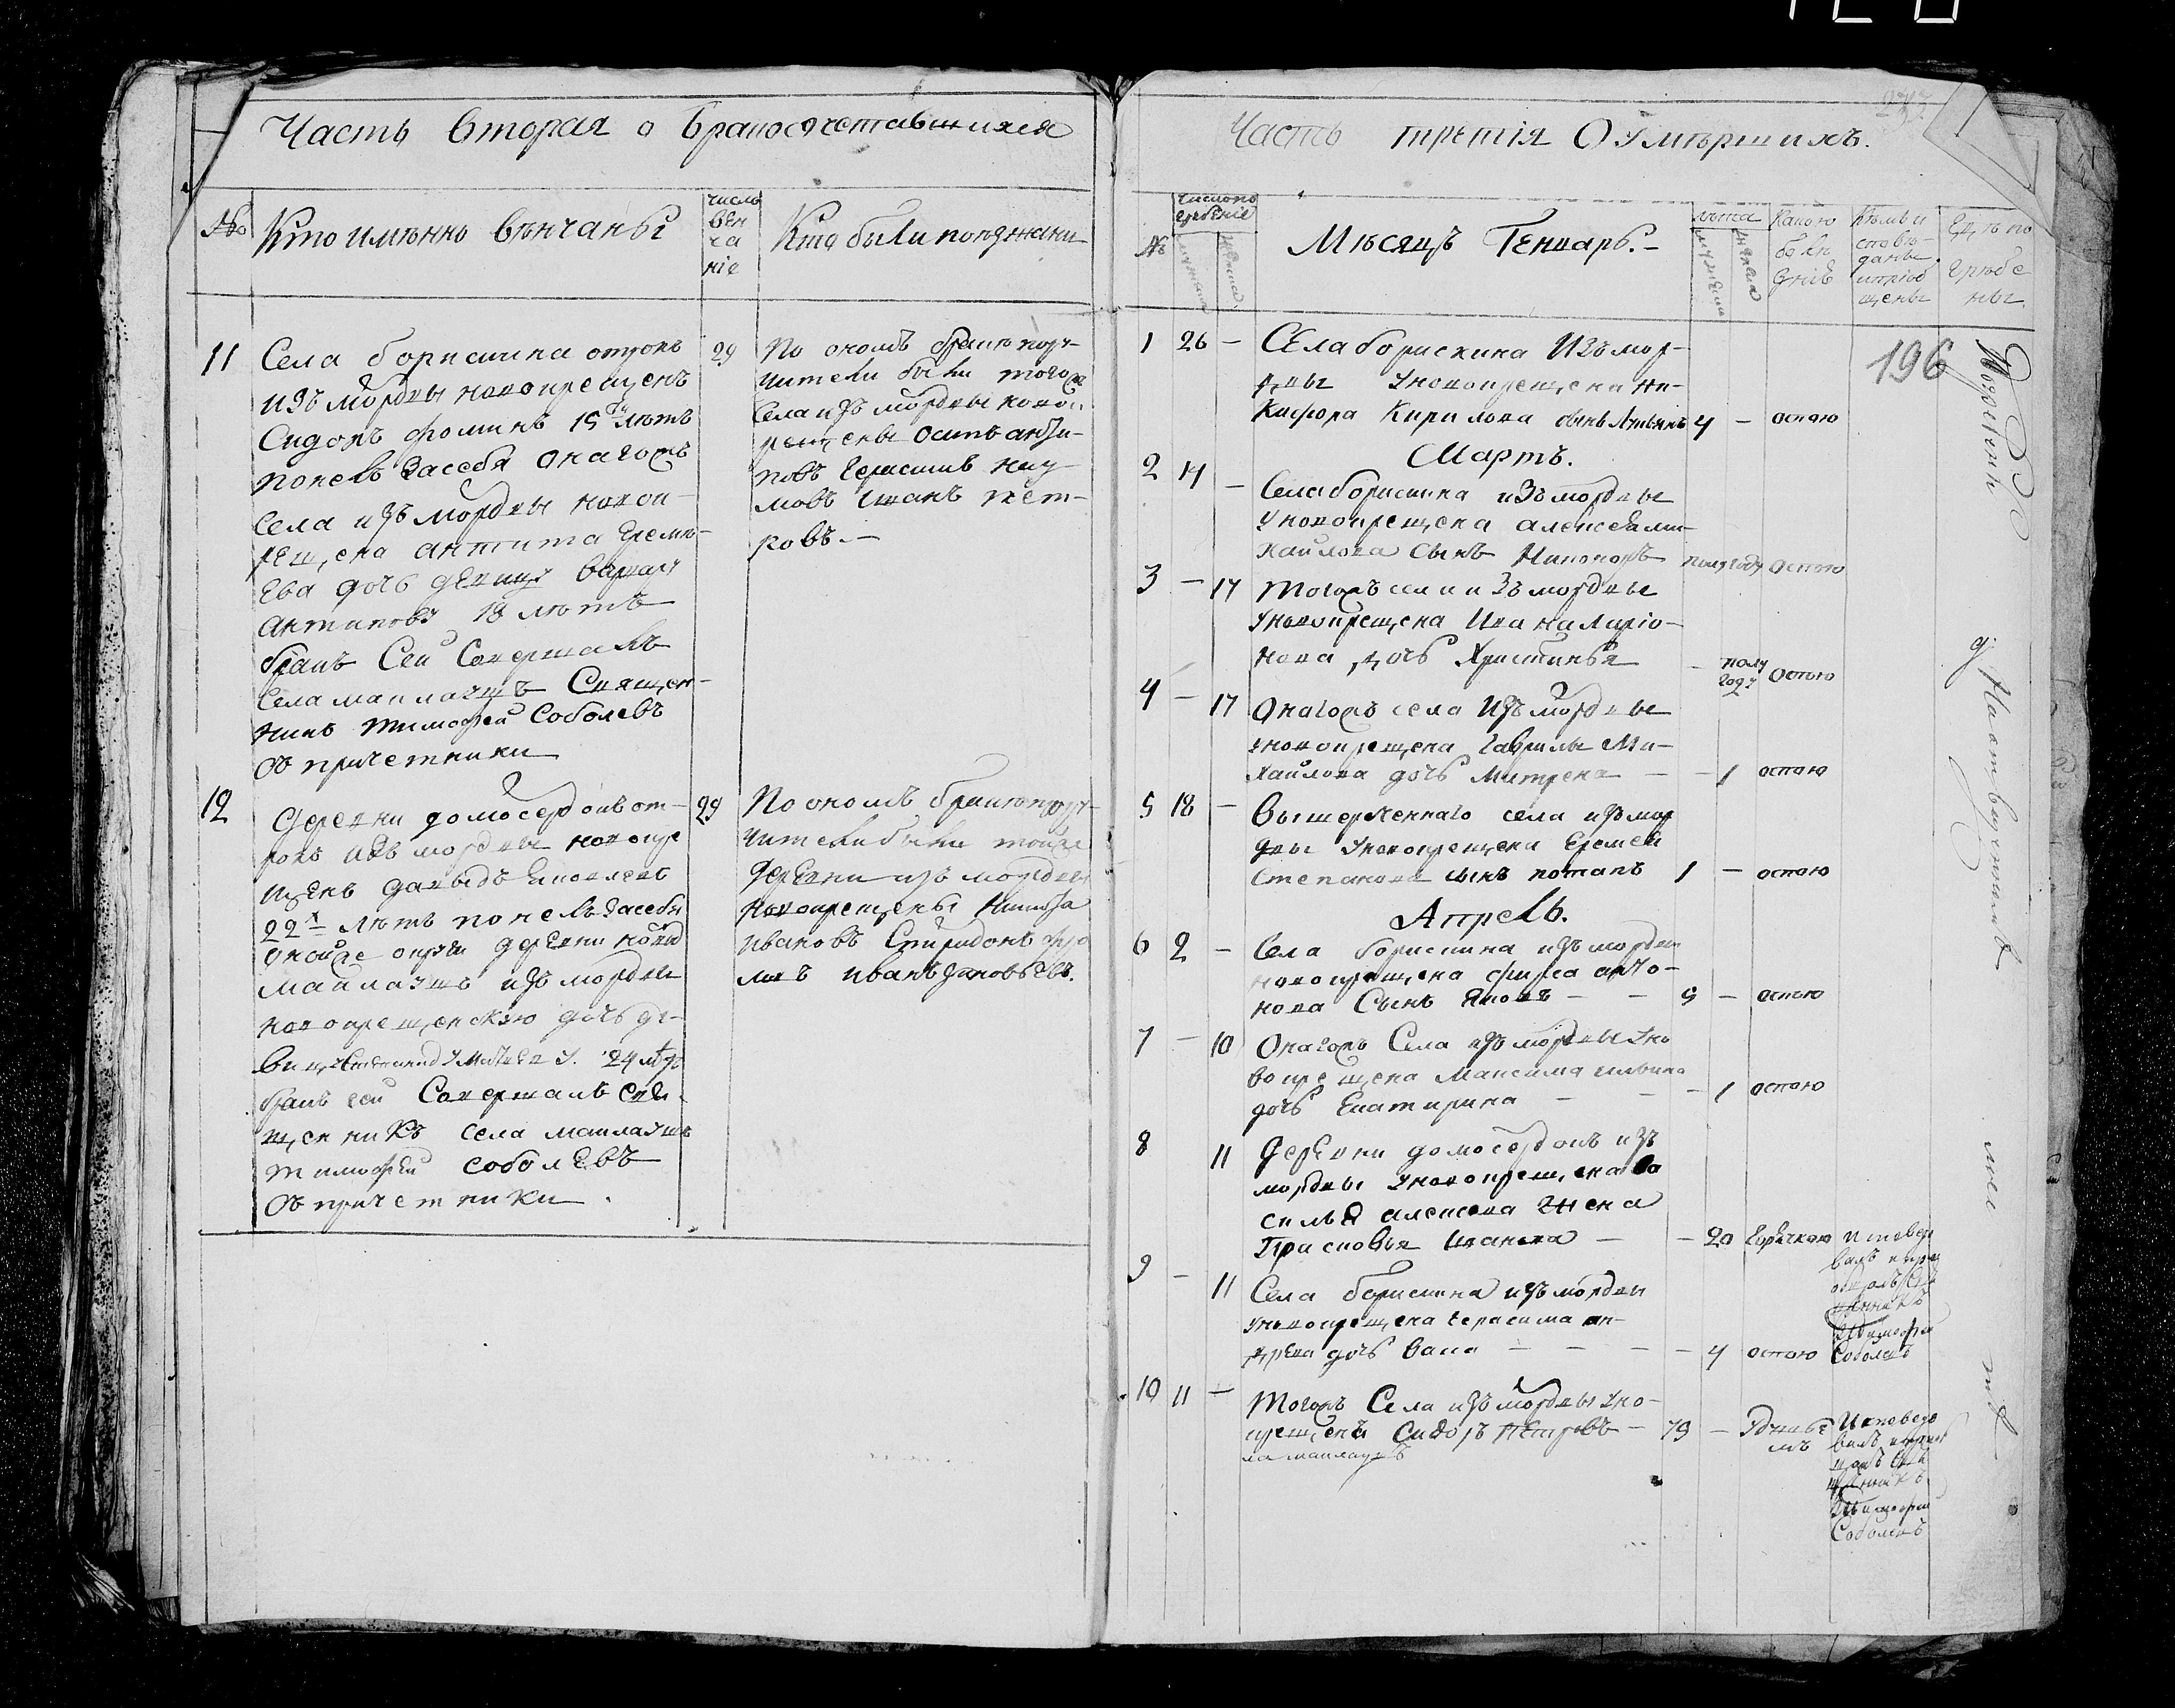 Часть Вторая о Бракосочетавшихся
№
Кто имѣнно вѣнчаны
число
вѣн
ча
ніе
Кто были поезжани
11
Села борискина отрокъ
изъ мордвы новокрещенъ
Сидоръ фоминъ 15ти лѣтъ
понелъ засебя онагожъ
Села изъ мордвы новок
рещена антипа Ереме
Ева дочь девицу варвару
антипову 18 лѣтъ
бракъ Сей Совершалъ
Села маклаушъ Священ
никъ тимофей Соболевъ
съ причетники
29
По ономъ браке пору
чители были тогожъ
Села изъ мордвы новок
рещены Осипъ
Герасимъ нау
мовъ Иванъ пет
ровъ.
12
Деревни домосердокъ от
рокъ изъ мордвы новокре
щенъ давыдъ Яковлевъ
22х лѣтъ понелъ засебя
онойже округи деревни новы
маклаушъ изъ мордвы
новокрещенскую дочь де
виц 24 лѣтъ
бракъ сей Совершалъ Свя
щенникъ села маклаушъ
тимофей Соболевъ
съ причетники.
29
По ономъ браке пору
чители были тойже
деревни изъ мордвы
новокрещены Никита
ивановъ Спиридонъ фро
ловъ иванъ зиновьевъ.
Часть третія О Умѣршихъ.
№
число по
гребеніе
мужеска
женска
Мѣсяцъ Генварь.
лѣта
мужеска
женска
Какою
болѣ
знію
Кѣмъ и
споведо
даны
и приоб
щены
Гдѣ по
гребе
ны
196
1 26 – Села борискина Изъ мор
двы Уновокрещена ни
кифора Кирилова сынъ 4 – оспою
Мартъ.
2 14 – Села борискина изъ мордвы
Уновокрещена алексея ми
хайлова Сынъ Никоноръ полугоду оспою
3 – 17 Тогожъ села изъ мордвы
Уновокрещена Ивана ларіо
нова дочь Христинья – полу
году оспою
4 – 17 Онагожъ села Изъ мордвы
Уновокрещена гаврилы Ми
хайлова дочь Матрена – – 1 оспою
5 18 – Вышереченнаго села изъ мор
двы Уновокрещена Еремея
Степанова сынъ потапъ 1 – оспою
Апрель.
6 2 – Села борискина изъ мордвы
новокрещена фирса анто
нова Сынъ Яковъ – – 9 – оспою
7 – 10 Онагожъ Села изъ мордвы Уно
вокрещена Максима ильина
дочь Екатирина – – – 1 оспою
8 11 Деревни домосердокъ изъ
мордвы Уновокрещена ва
силья алексева жена
Прасковья Иванова – – 20 Горячкою
Исповедо
валъ и при
общалъ Свя
щенникъ
Тимофей
Соболевъ
9 – 11 Села борискина изъ мордвы
Уновокрещена Герасима ан
дреева дочь васа – – – – 4 оспою
10 11 – Тогожъ Села изъ мордвы Уно
крещенъ Сидоръ Петровъ – 79 – Удушье
мъ
Исповедо
валъ и приоб
щалъ Свя
щенникъ
Тимофей
Соболевъ